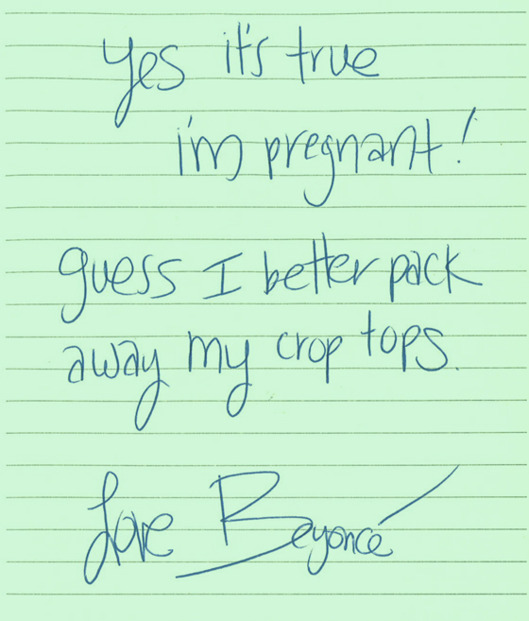 yes it's true
i'm pregnant!
guess I better pack
away my crop tops.
Love Beyoncé